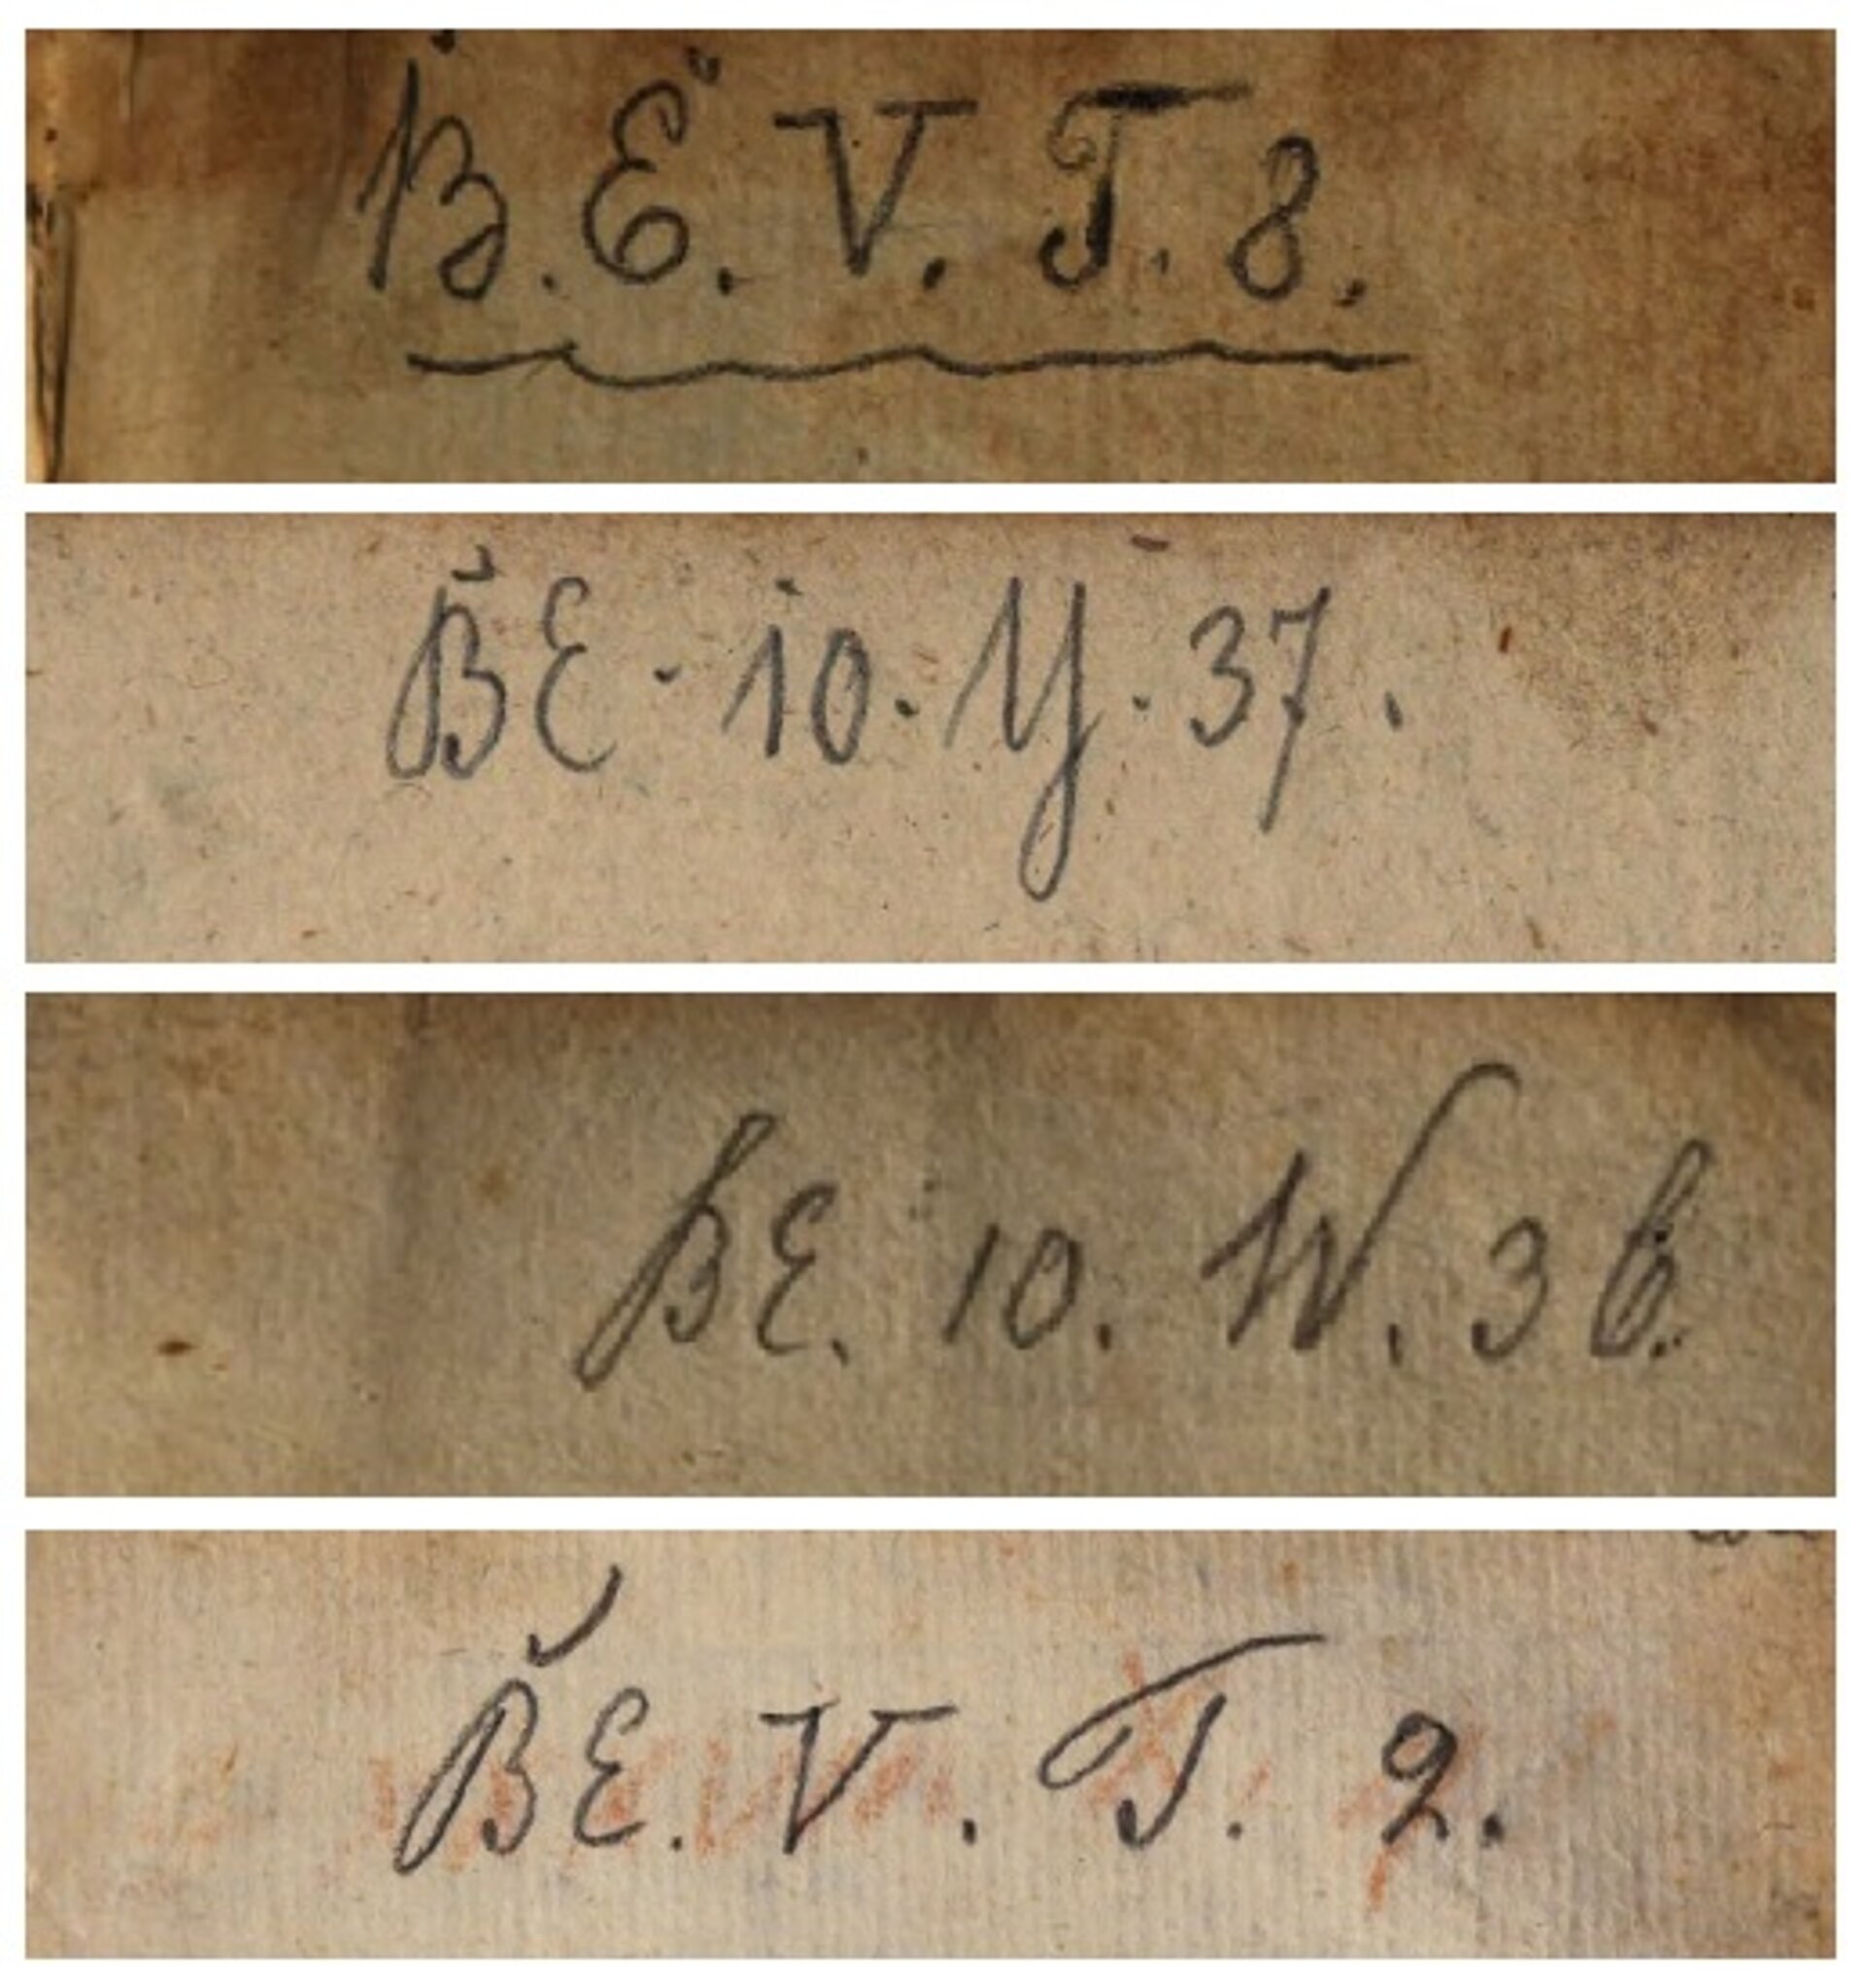 B. E. V. T. 8.
BE. 10. Y. 37.
BE. 10. W. 36.
BE. V. T. 2.